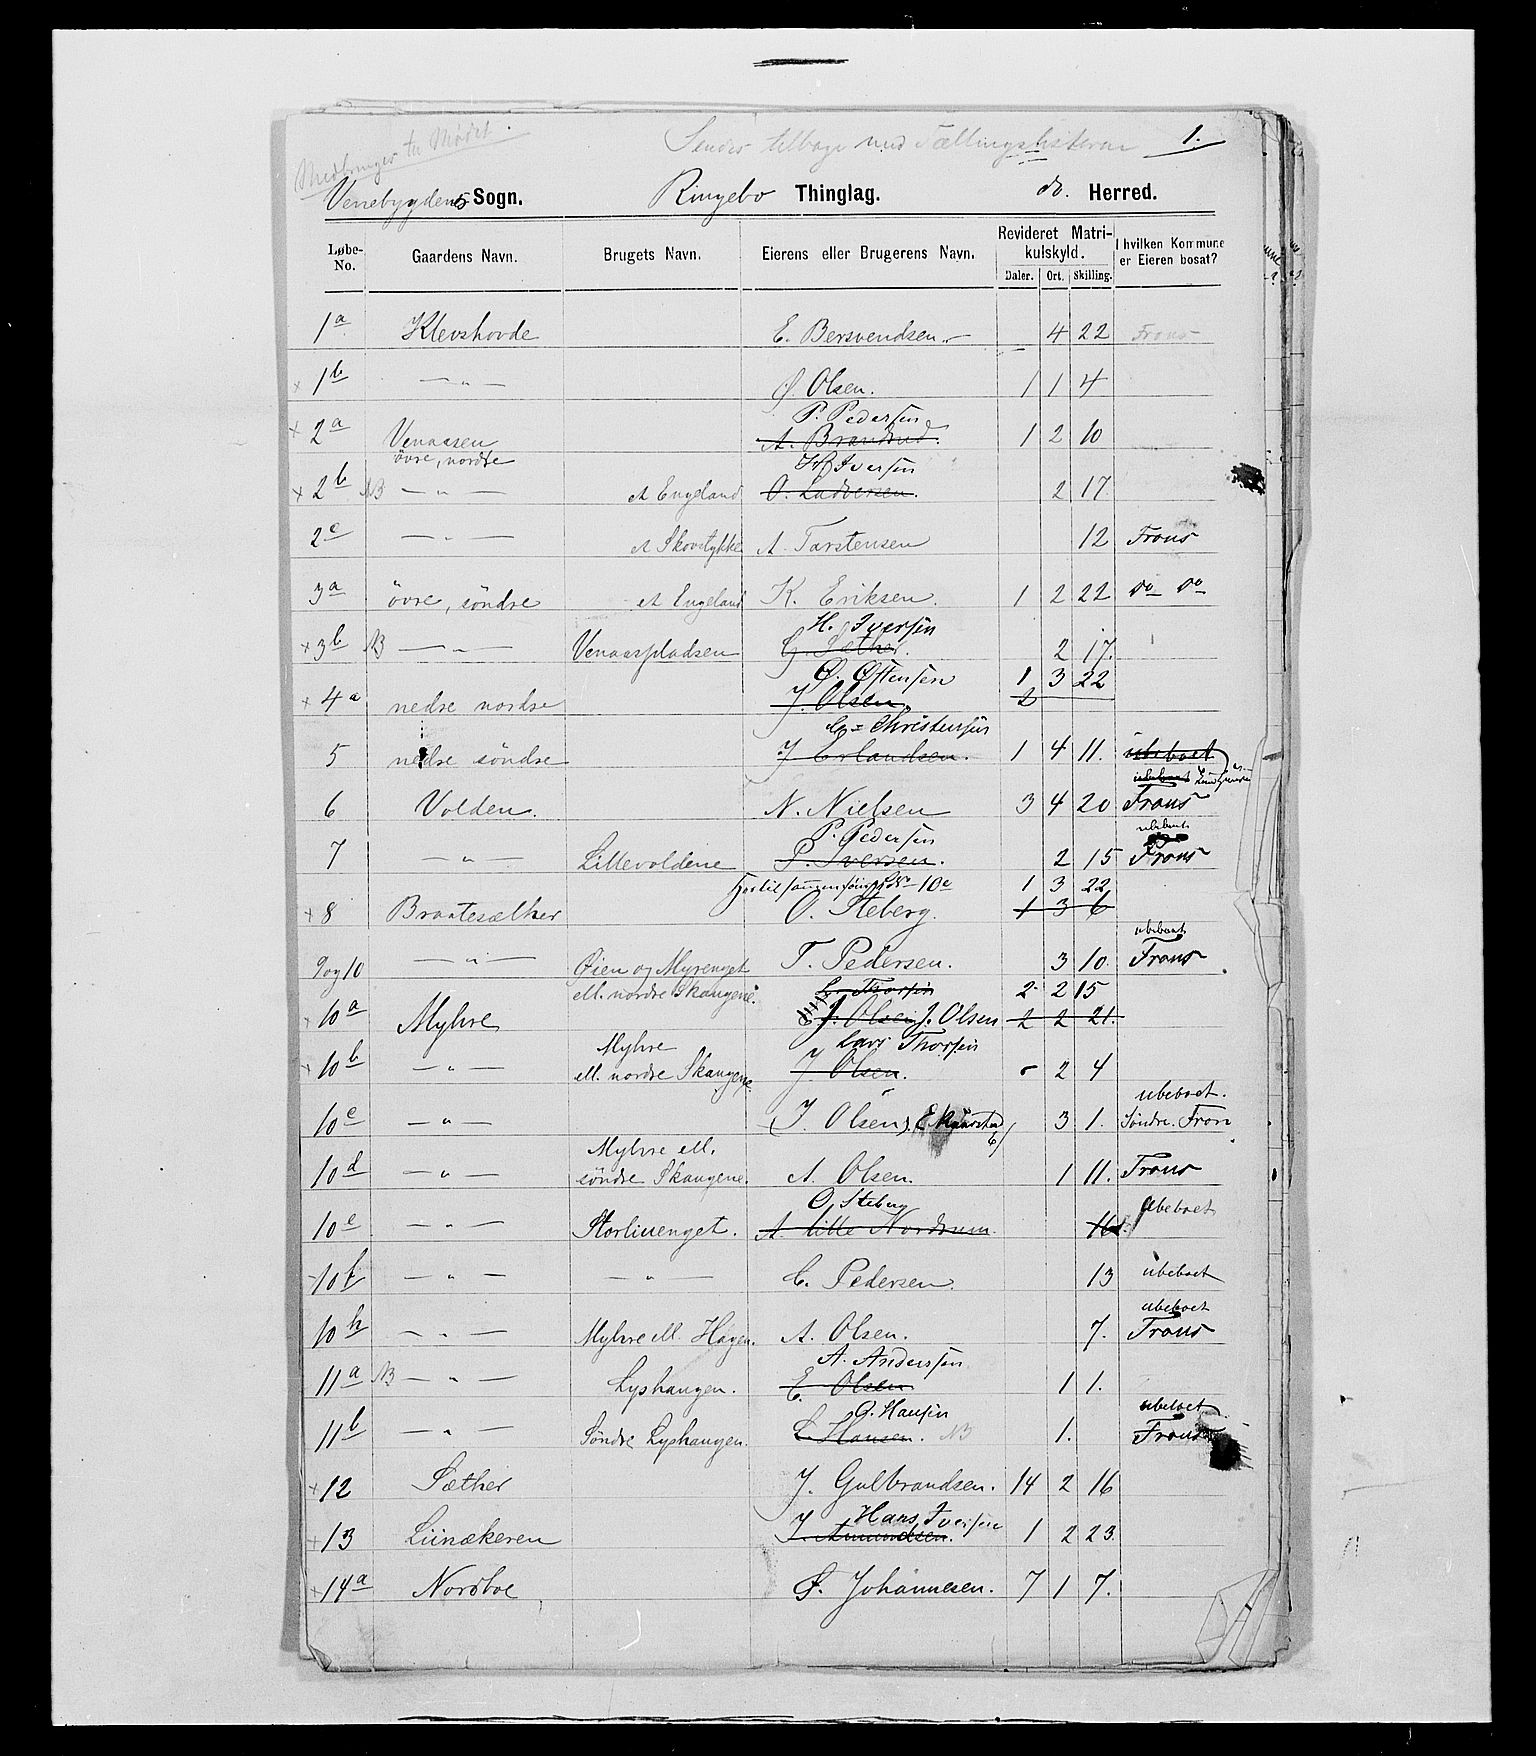 Medbringes til Mødet.
Sendes tilbage med Tællingslisterne 1.
Venebygdens Sogn. Ringebo Thinglag. do. Herred.
Løbe-No. Gaardens Navn. Brugets Navn. Eierens eller Brugerens Navn. Revideret Matrikulskyld. I hvilken Kommune er Eieren bosat?
Daler. Ort. Skilling.
1a Klevshovde E. Bersvendsen. – 4 22 Frons
× 1b — „ — Olsen. 1 1 4
P. Pedersen
× 2a Venaasen A. Brandsrud. 1 2 10
övre, nordre H Iversen
× 2b NB — „ — et Engeland O. Ludversen. 2 17.
2c — „ — et Skovstykke A. Torstensen 12 Frons
3a övre, söndre et Engeland K. Eriksen. 1 2 22 do do
H. Iversen
× 3b NB — „ — Venaaspladsen G. Sæther. 2 17.
Ø. Østensen 1 3 22
× 4a nedre nordre J. Olsen. 2
Christensen
5 nedre söndre J. Erlandsen. 1 4 11. ubeboet
ubeboet
6 Volden. N. Nielsen 3 4 20 Frons
P. Pedersen ubeboet
7 — „ — Lillevoldene P. Iversen. 2 15 Frons
10e 1 3 22
× 8 Braatesæther O. Steberg. 1 3 6
ubeboet
9 og 10 — „ — Øien og Myrenget T. Pedersen. 3 10. Frons
ell. nordre Skaugene. L. Thorsen 2 2 15
10a Myhre J. Olsen J. Olsen 2 2 21.
Myhre Lars Thorsen
10b — „ — ell. nordre Skaugene. J. Olsen. - 2 4
ubeboet.
10c — „ — (J. Olsen). 3 1. Søndre. Fron
Myhre ell.
10d — „ — söndre Skaugene. A. Olsen. 1 11. Frons
O. Steberg ubeboet
10e — „ — Storlienget. A. lille Nordrum. 16.
10f — „ — — „ — C. Pedersen. 13 ubeboet
ubeboet
10h — „ — Myhre ell. Hagen. A. Olsen. 7. Frons
A. Anderssen
11a NB — „ — Lyshaugen. E. Olsen 1 1.
O. Hansen ubeboet
11b — „ — Söndre Lyshaugen. L. Hansen. NB 1. Frons
× 12 Sæther J. Gulbrandsen. 14 2 16
Hans Iversen
× 13 Liinækeren J. Amundsen. 1 2 23.
× 14a Nordboe S. Johannesen. 7 1 7.